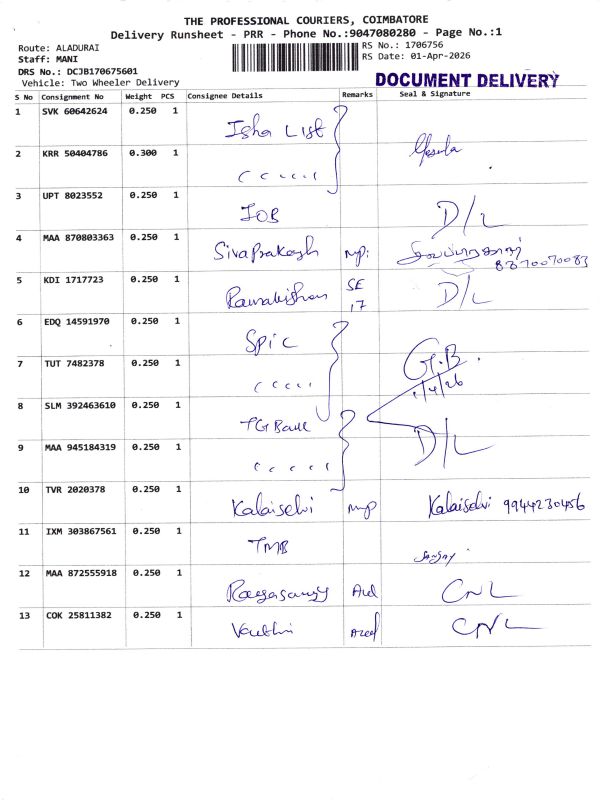 THE PROFESSIONAL COURIERS, COIMBATORE
Delivery Runsheet - PRR - Phone No.:9047080280 - Page No.:1
Route: ALADURAI
RS No.: 1706756
Staff: MANI
RS Date: 01-Apr-2026
DRS No.: DCJB170675601
Vehicle: Two Wheeler Delivery
DOCUMENT DELIVERY
S No Consignment No Weight PCS Consignee Details Remarks Seal & Signature
1 SVK 60642624 0.250 1 Isha List
2 KRR 50404786 0.300 1
3 UPT 8023552 0.250 1 IOB D/L
4 MAA 870803363 0.250 1 SivaPrakash சிவப்பிரகாஷ்
5 KDI 1717723 0.250 1 SE 17 D/L
6 EDQ 14591970 0.250 1 SPiC G.B
7 TUT 7482378 0.250 1 1/4/26
8 SLM 392463610 0.250 1
9 MAA 945184319 0.250 1 D/L
10 TVR 2020378 0.250 1 Kalaiselvi Kalaiselvi 9944230456
11 IXM 303867561 0.250 1 TMB Sanjay
12 MAA 872555918 0.250 1 CNL
13 COK 25811382 0.250 1 CNL